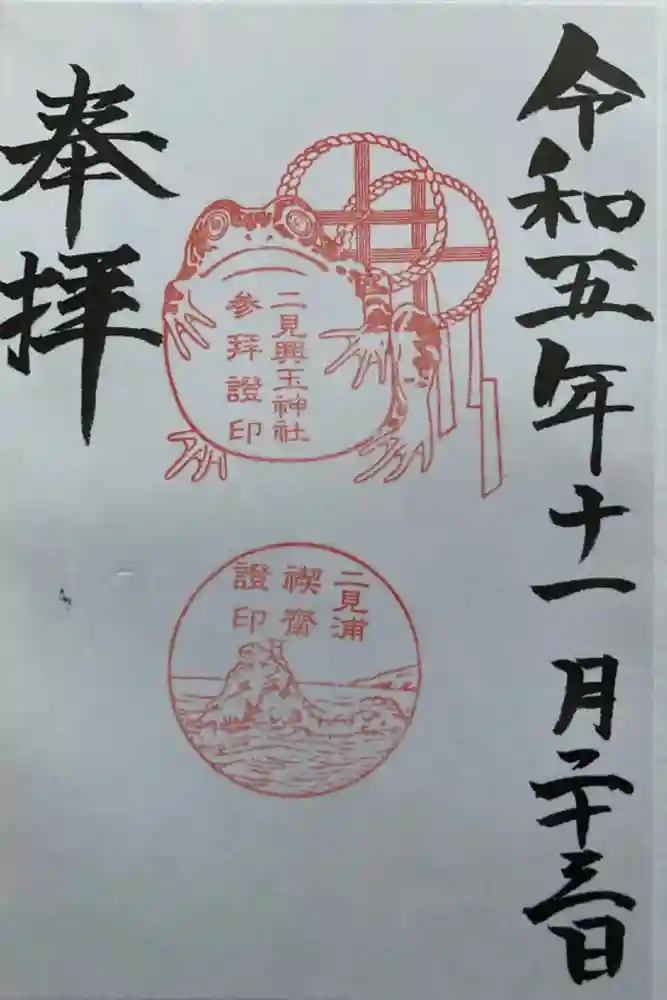 令和五年十一月二十三日
二見興玉神社
参拜證印
二見浦
禊齋
證印
奉拝